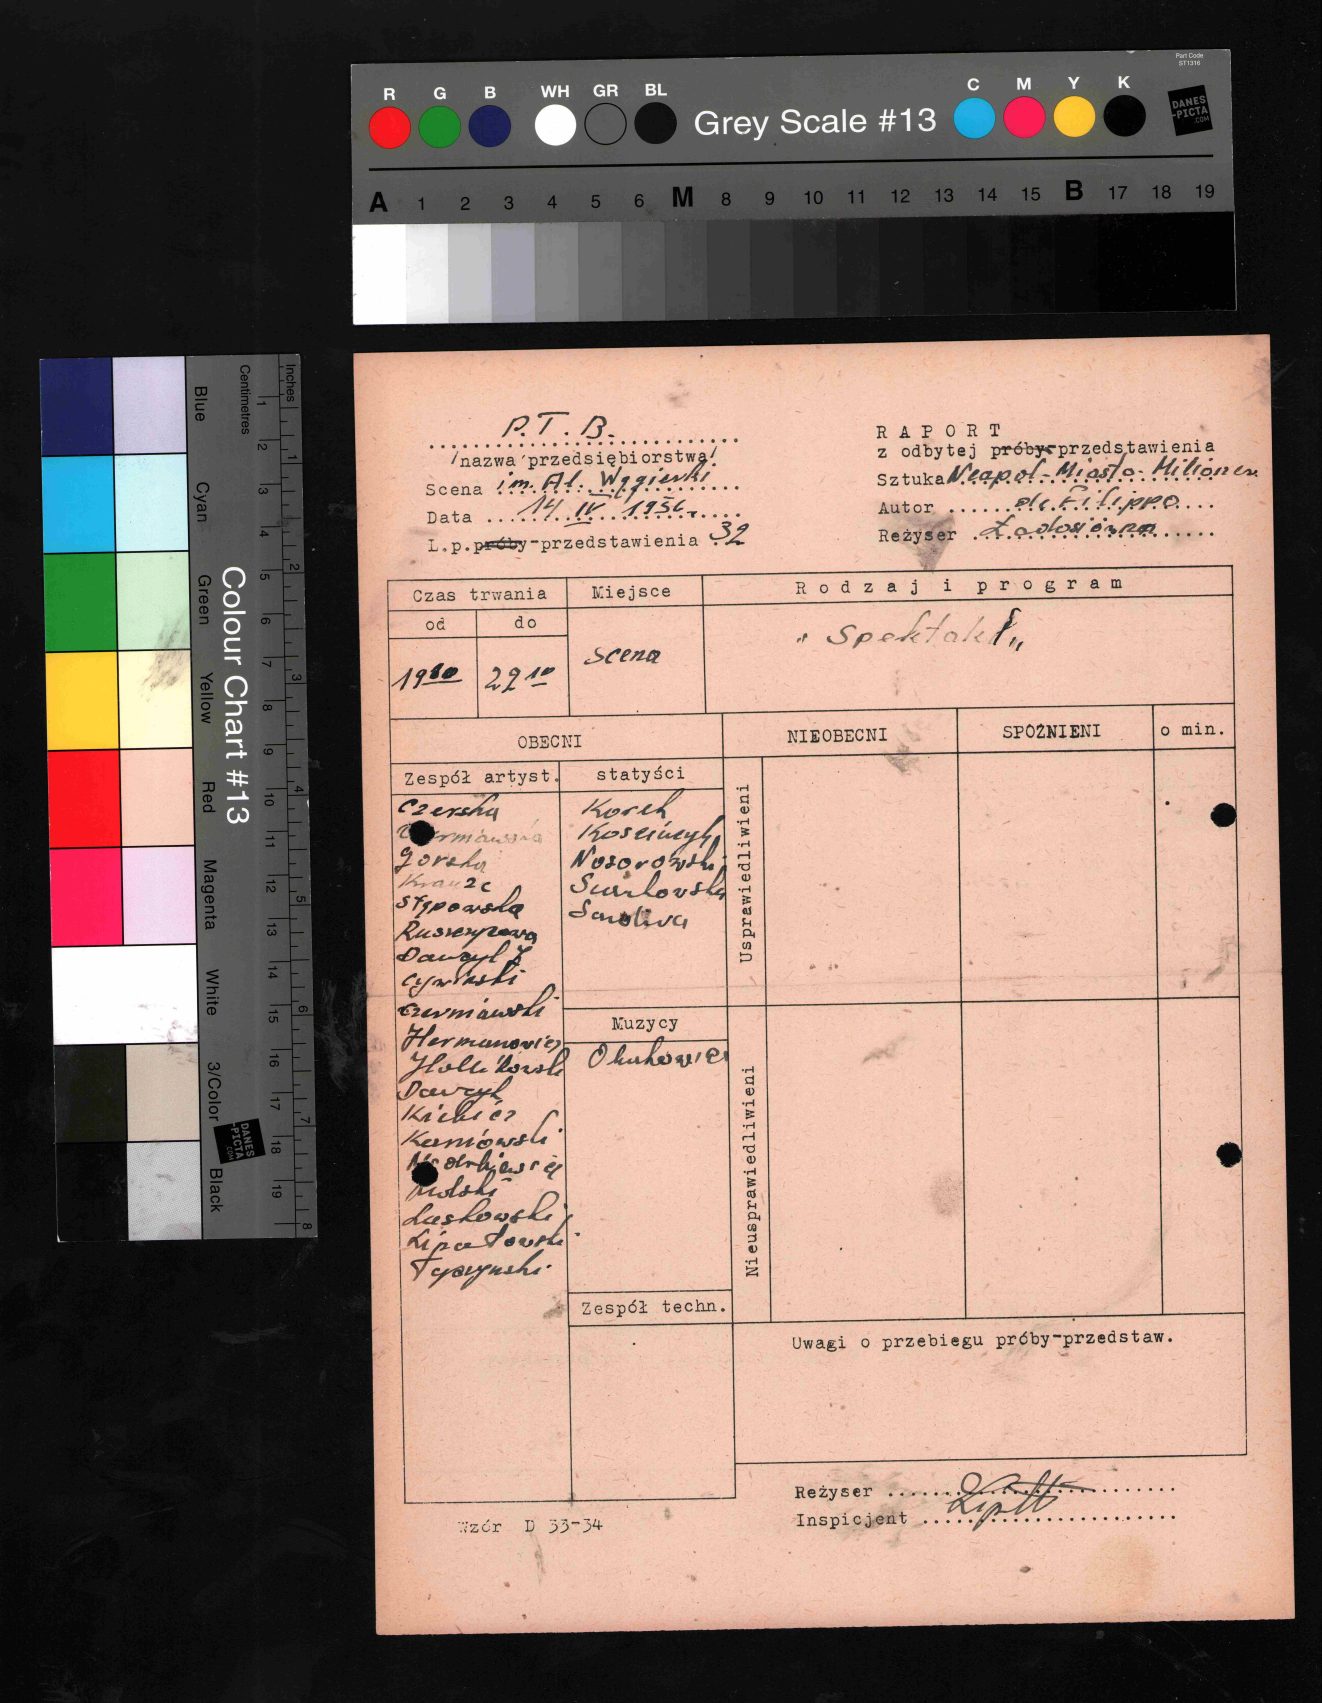 Part Code
ST1316
R G B WH GR BL Grey Scale #13 C M Y K
DANES
-PICTA
.COM
A 1 2 3 4 5 6 M 8 9 10 11 12 13 14 15 B 17 18 19
Colour Chart #13
Blue Cyan Green Yellow Red Magenta White 3/Color Black
Centimetres
1 2 3 4 5 6 7 8 9 10 11 12 13 14 15 16 17 18 19
Inches
1 2 3 4 5 6 7 8
DANES
-PICTA
.COM
P. T. B.
/nazwa przedsiębiorstwa/
Scena im. Al. Węgierki
Data 14 IV 1956
L.p. próby-przedstawienia 32
R A P O R T
z odbytej próby-przedstawienia
Sztuka Neapol-Miasto-Milioner
Autor de Filippo
Reżyser
Czas trwania
od
do
Miejsce
R o d z a j i p r o g r a m
19 10
22 10
Scena
„Spektakl„
OBECNI
NIEOBECNI
SPÓŹNIENI
o min.
Zespół artyst.
statyści
Czerska
Górska
Krauze
Stępowska
Dawzyl
Cywiński
Czerniawski
Hermanowicz
Kaniowski
Wolski
Laskowski
Lipatowski
Tyszyński
Korek
Nosorowski
Muzycy
Zespół techn.
Usprawiedliwieni
Nieusprawiedliwieni
Uwagi o przebiegu próby-przedstaw.
Reżyser
Inspicjent
Wzór D 33-34